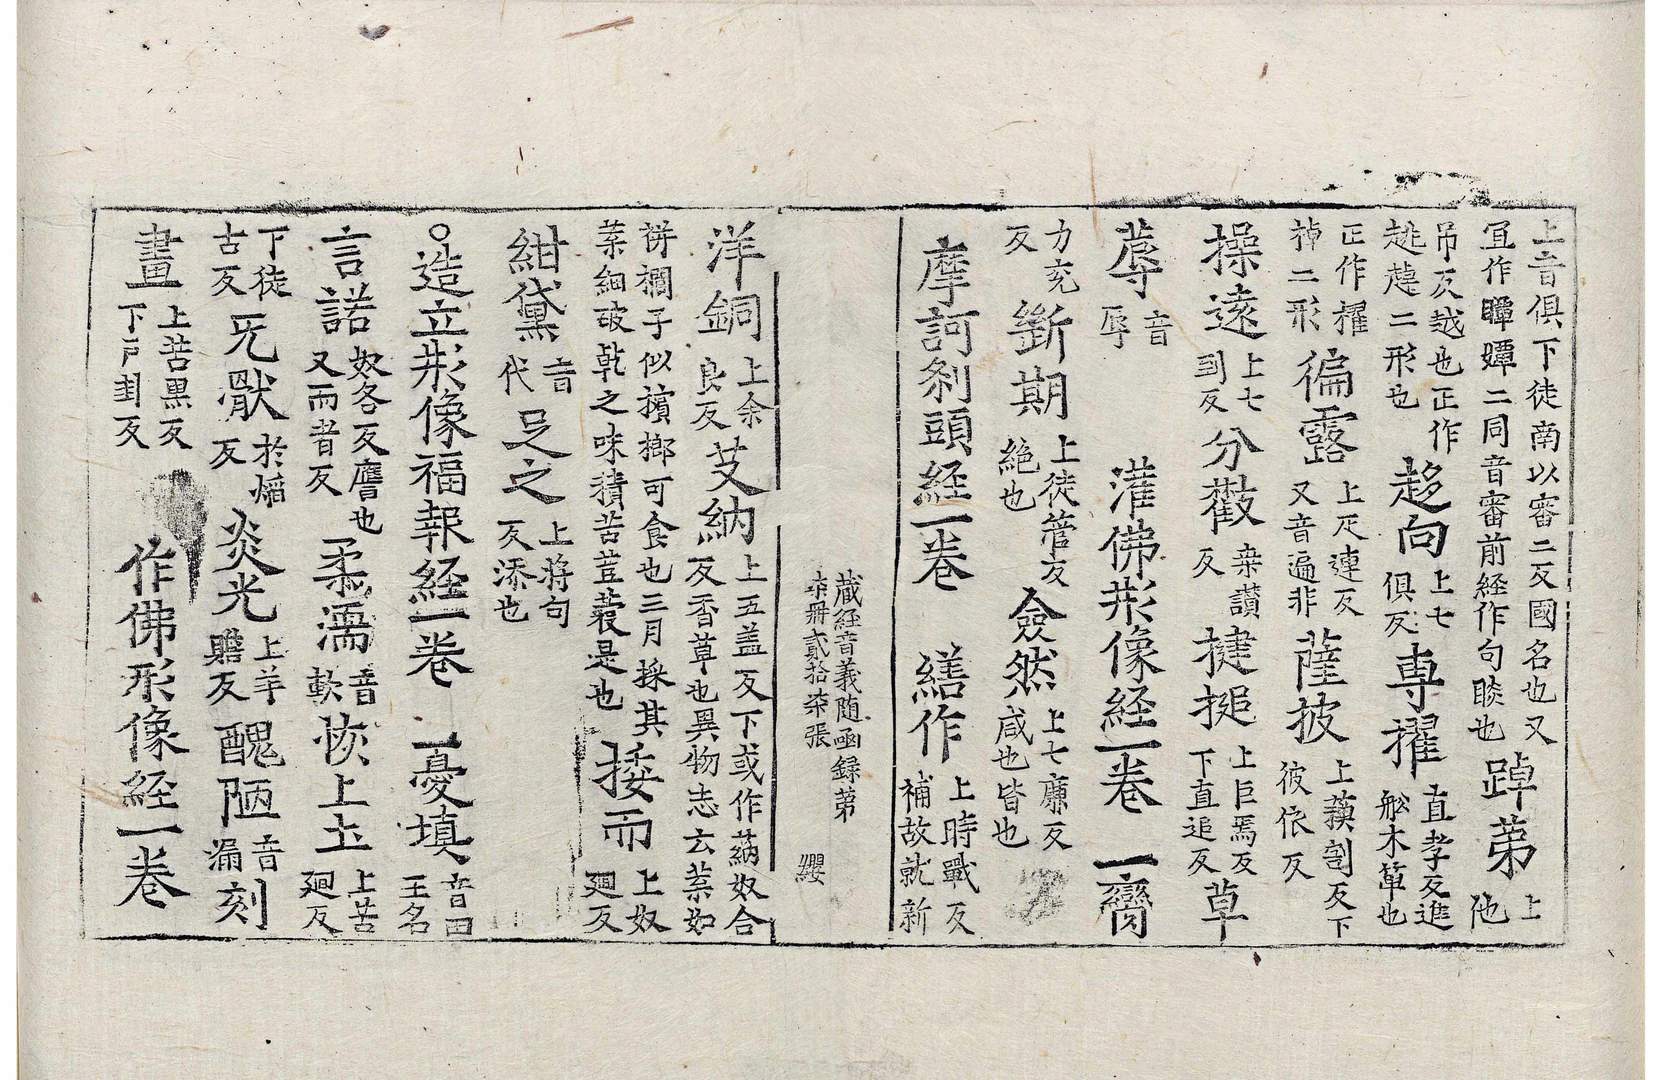 上音俱下徒南以審二反國名也又宜作瞫嬋二同音審前経作句睒也踔苐上他
吊反越也正作趒趠二形也趍向上七俱反専擢直孝反進舩木也
正作櫂棹二形徧露上疋連反又音遍非薩披上割反下彼依反
操遠上七到反分桒讃反揵搥上巨焉反下直追反草
蓐音辱 灌佛形像経一卷 一臠
力充反斷期上徒管反絶也僉然上七廉反咸也皆也
摩訶刹頭経一卷 繕作上時戰反補故就新
藏経音義随凾録苐柒冊貳拾柒張 纓
洋銅上余良反艾納上五盖反下或作蒳奴合反香草也異物志云葉如
栟櫚子似檳榔可食也三月採其葉細破乹之味猜苦荳蔲是也捼而上奴廻反
紺黛音代足之上將句反添也
〇造立形像福報経一卷 一憂填音田王名
言諾奴各反譍也又而者反柔濡音軟恢上土上苦廻反
下徒古反旡猒於焰反炎光上羊贍反醜陋音漏刻
畫上苦黒反下戸封反 作佛形像経一卷